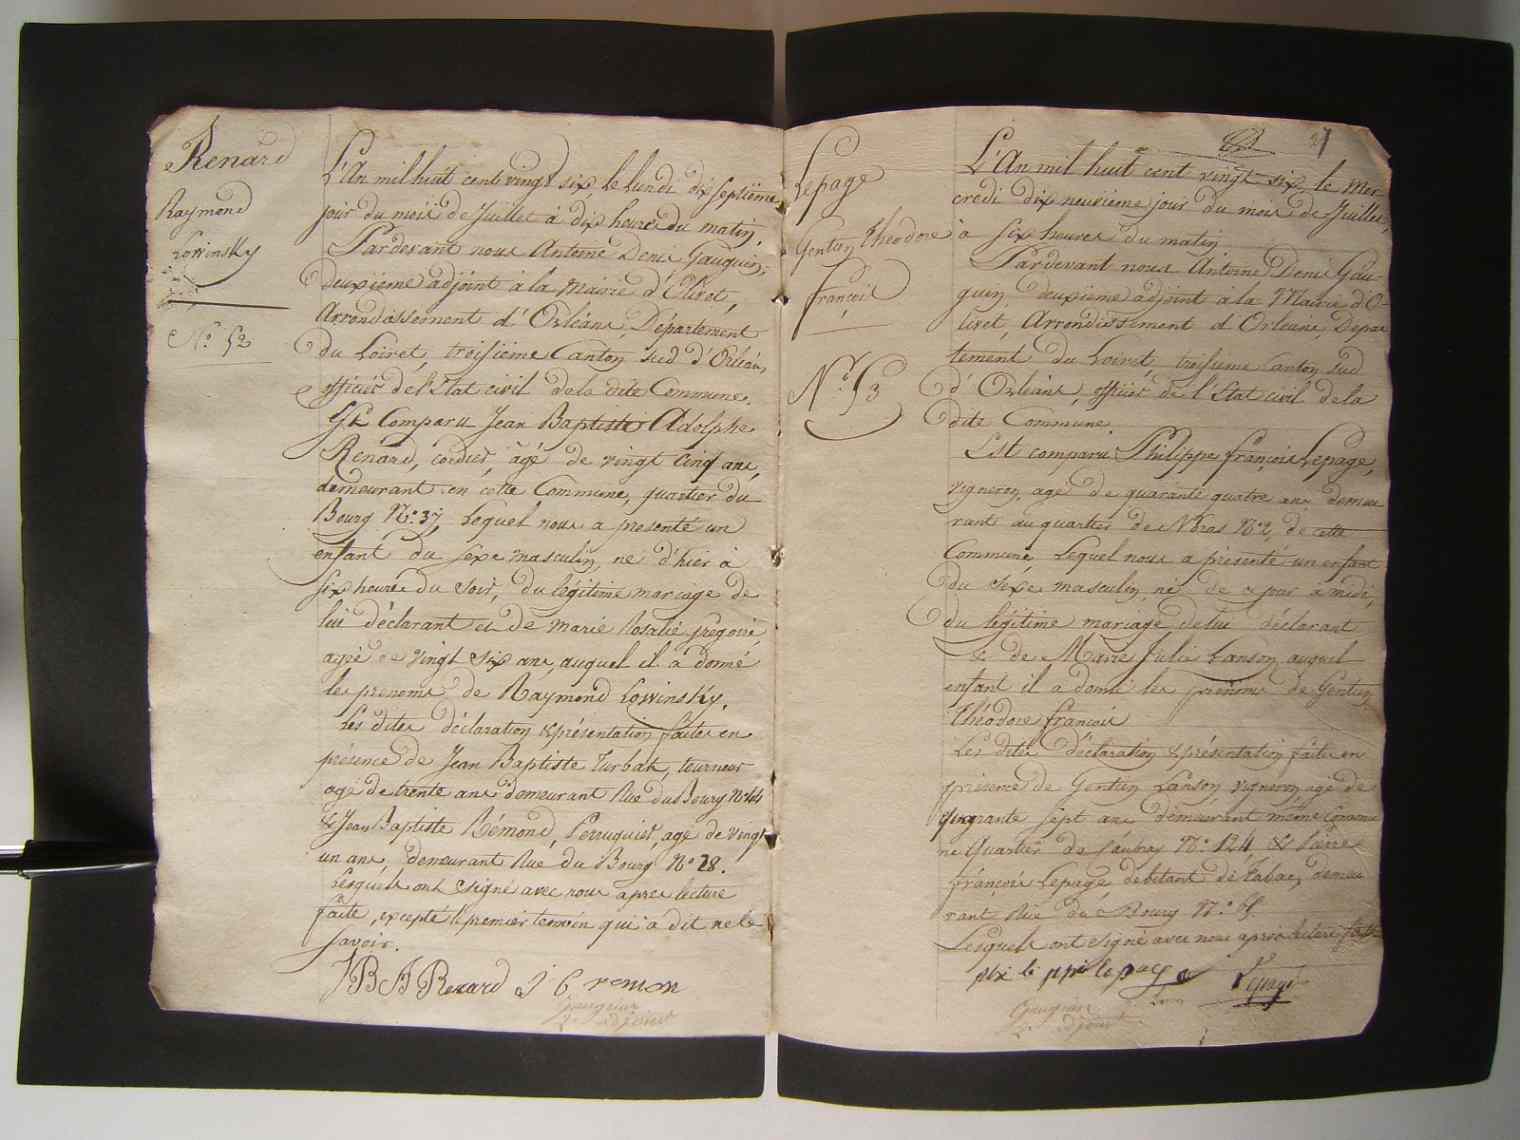 Renard
Raymond
Lowinsky
N.o 52
L'An mil huit cent vingt six, le lundi dix septiéme
jour du mois de Juillet à dix heures du matin.
Pardevant nous Antoine Denis Gauguin,
deuxieme adjoint à la Mairie d'Olivet,
Arrondissement d'Orléans, Département
du Loiret, troisième Canton sud d'Orléans,
officier de l'Etat civil de la dite Commune.
Est Comparu Jean Baptiste Adolphe
Renard, cordier, âgé de vingt cinq ans,
demeurant en cette Commune, quartier du
Bourg N.o 37, lequel nous a presenté un
enfant du sexe masculin, né d'hier à
six heures du soir, du légitime mariage de
lui déclarant et de Marie Rosalie gregoire,
agée de vingt six ans, auquel il a donné
les prenoms de Raymond Lowinsky.
Les dites déclaration & présentation faites en
présence de Jean Baptiste Turbat, tourneur
agé de trente ans demeurant Rue du Bourg N.o 44
& Jean Baptiste Rémond, Perruquier, agé de vingt
un ans, demeurant Rue du Bourg N.o 28.
Lesquels ont signé avec nous apres lecture
faite, excepté le premier temoin qui a dit ne le
savoir.
J B A Renard J B remon
Gauguin
adjoint
Lepage
Gentien théodore
françois
N.o 53
27
L'An mil huit cent vingt six, le Mer
credi dix neuvieme jour du mois de Juillet,
à six heures du matin
Pardevant nous Antoine Denis Gau-
guin, deuxieme adjoint à la Mairie d'O-
livet, Arrondissement d'Orléans, Depar
tement du Loiret, troisieme Canton sud
d'Orléans, officier de l'Etat civil de la
dite Commune.
Est comparu Philippe françois Lepage,
vigneron, agé de quarante quatre ans demeu
rant au quartier de N.o 2, de cette
Commune, Lequel nous a présenté un enfant
du sexe masculin, né de ce jour a midi,
du légitime mariage de lui déclarant
& de Marie Julie Lanson auquel
enfant il a donné les prénoms de Gentien
théodore françois
Les dites déclaration & présentation faites en
présence de Gentien Lanson vigneron agé de
sept ans demeurant même Commu
ne Quartier de N.o 124 & Pierre
françois Lepage, debitant de Tabac, demeu
rant Rue du Bourg N.o
Lesquels ont signé avec nous après lecture faite
phi li ppe le page Lepage
Gauguin
adjoint